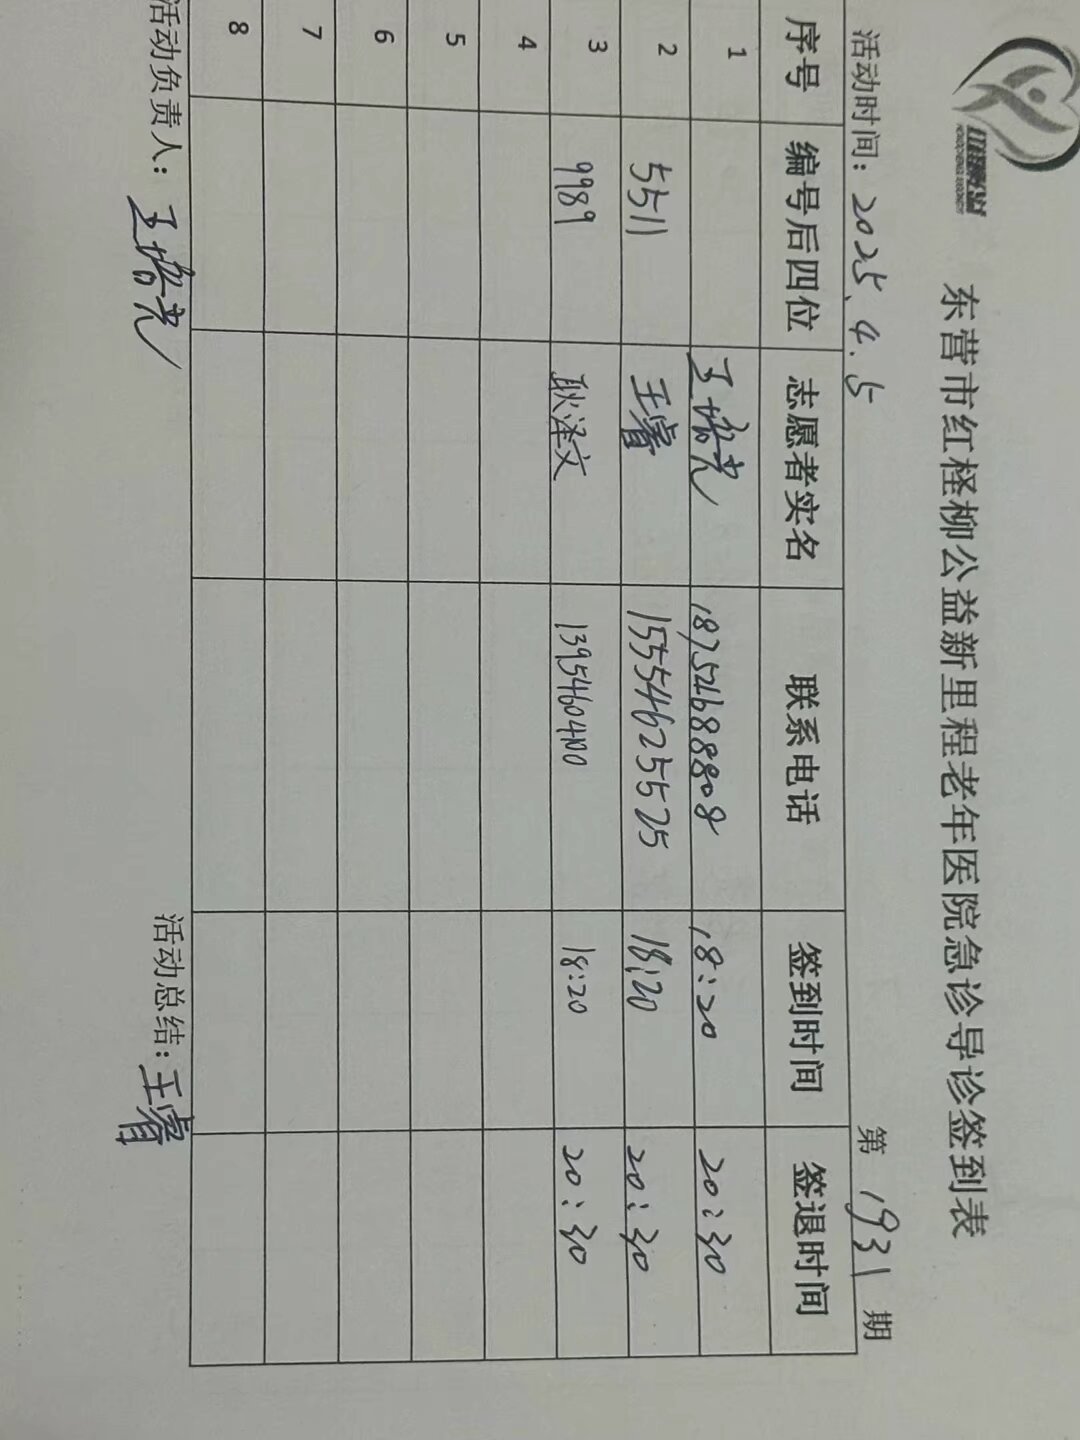 东营市红柽柳公益新里程老年医院急诊导诊签到表
活动时间：2025.4.5 第 1931 期
序号 编号后四位 志愿者实名 联系电话 签到时间 签退时间
1 王培光 18754688808 18:20 20:30
2 5511 王睿 15554625525 18:20 20:30
3 9989 耿泽文 13954604100 18:20 20:30
4
5
6
7
8
活动负责人：王培光 活动总结：王睿